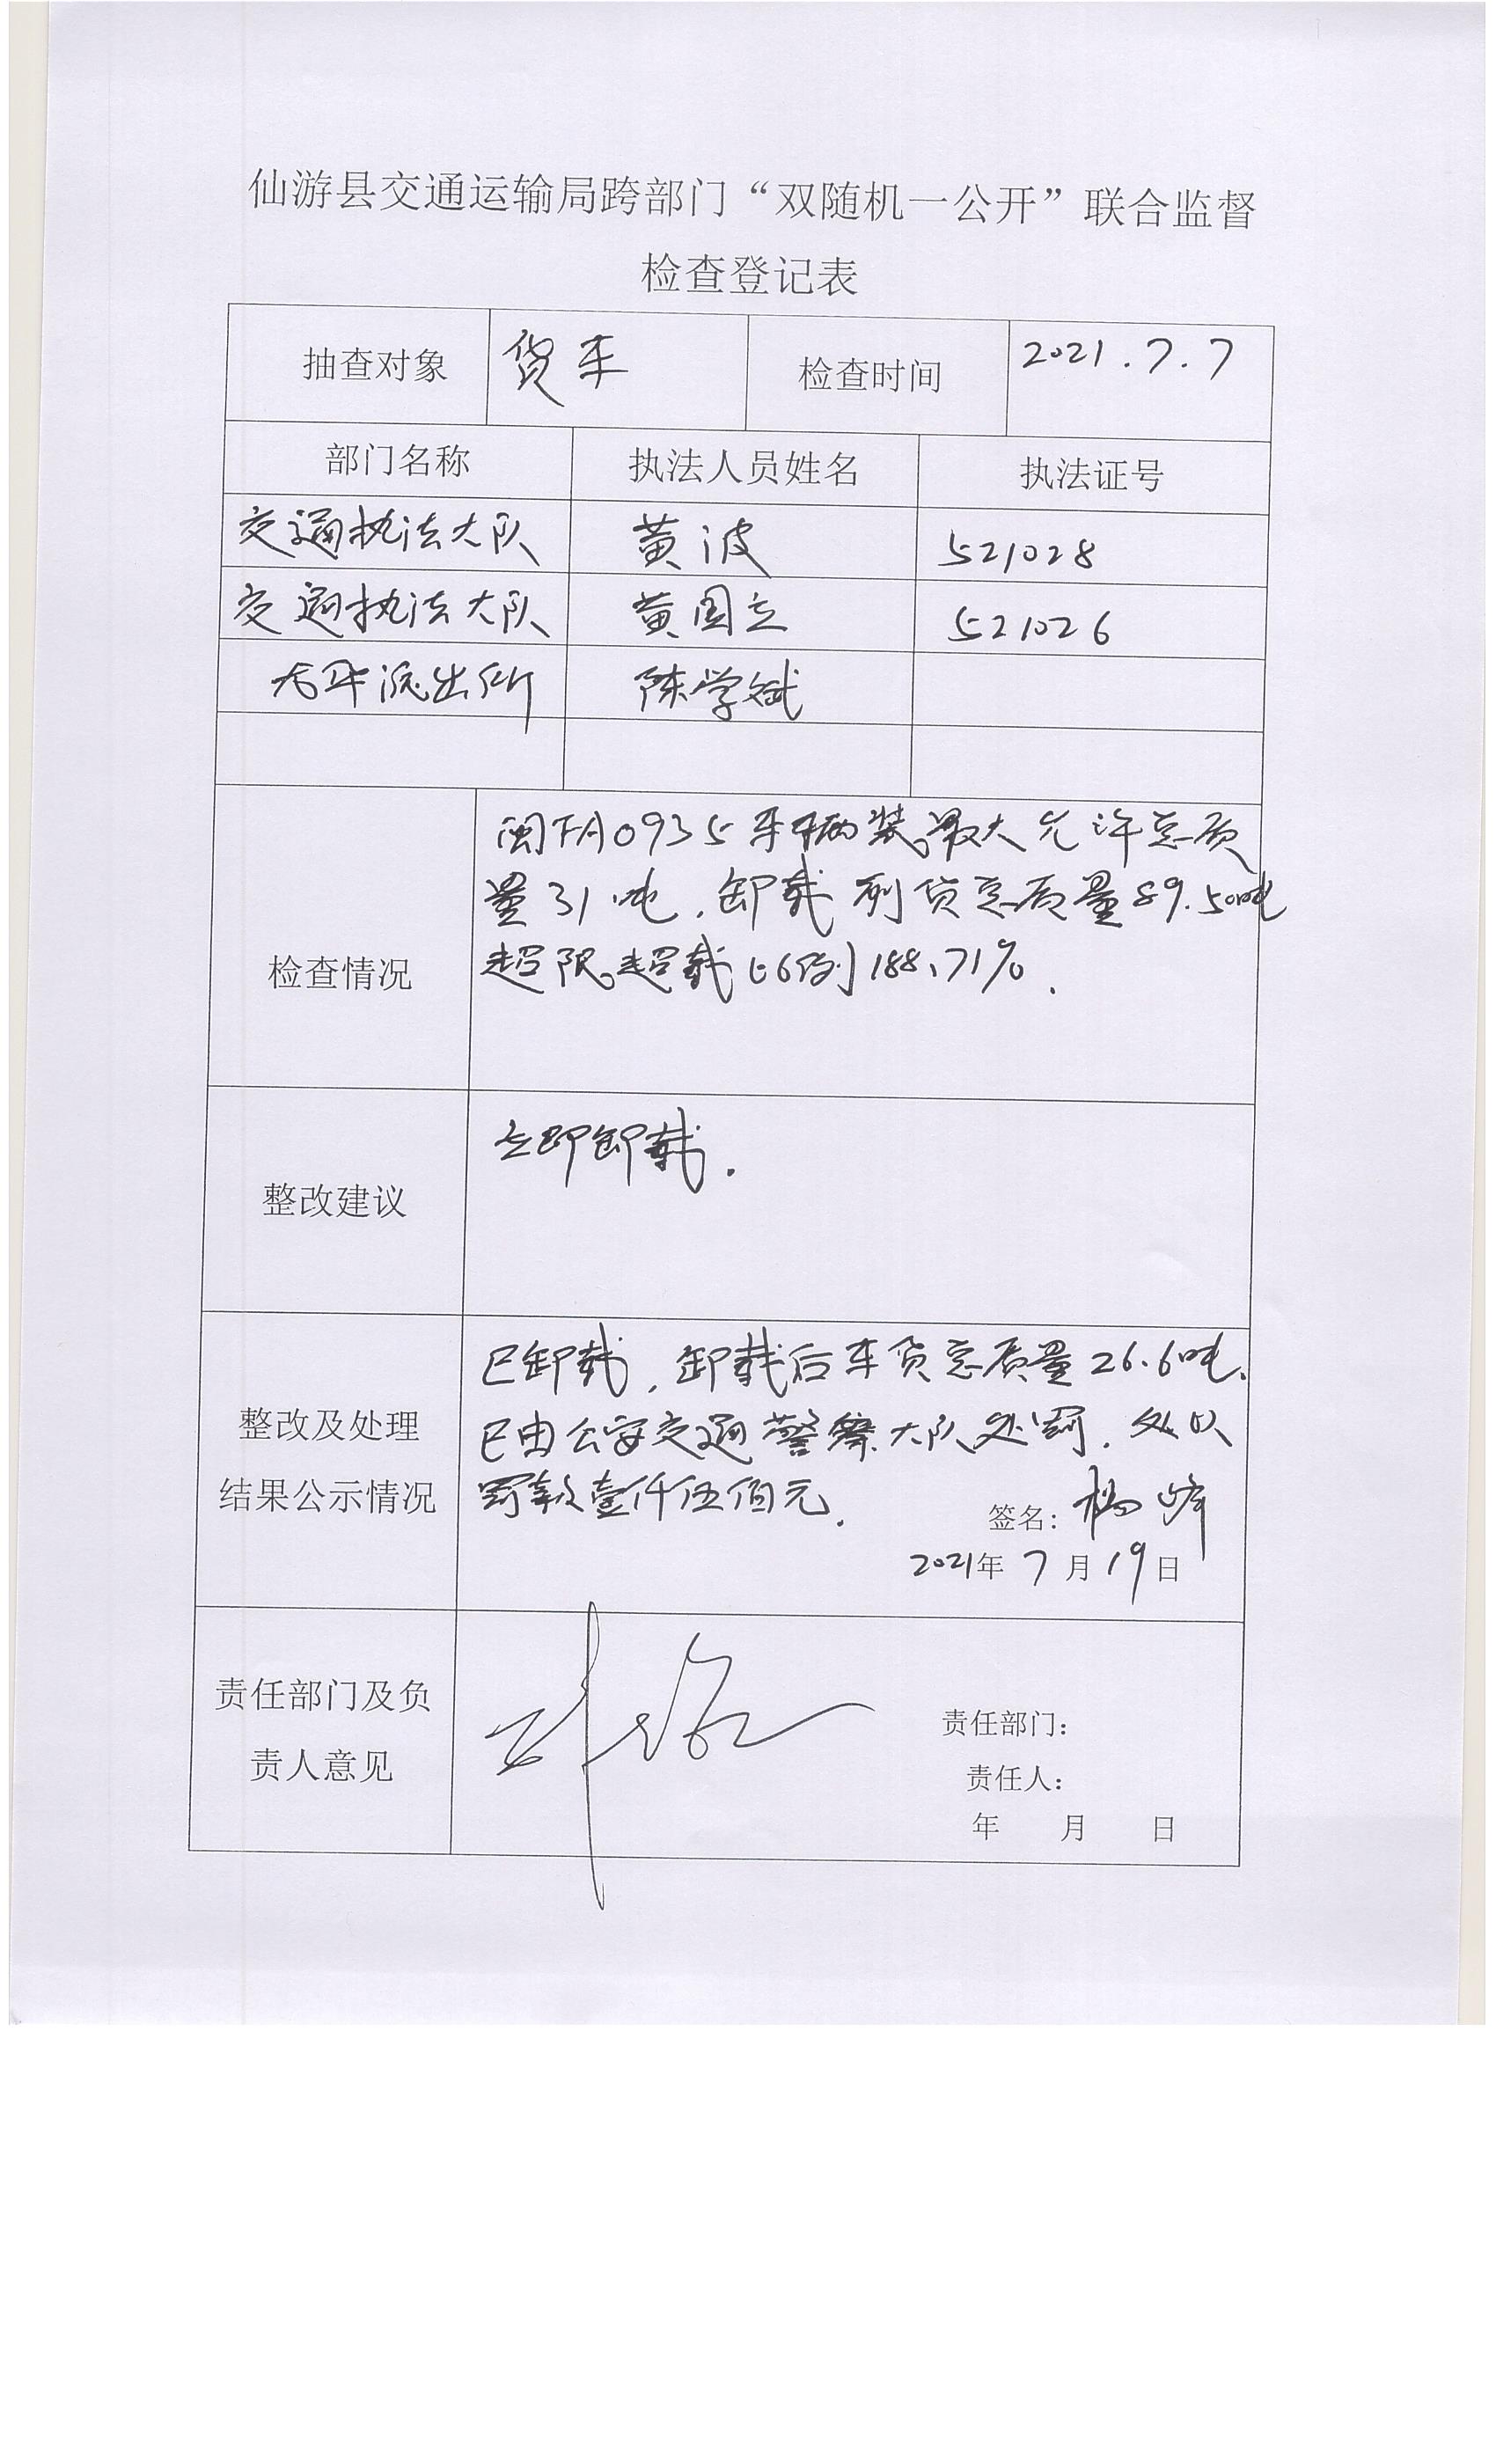 仙游县交通运输局跨部门“双随机一公开”联合监督
检查登记表
抽查对象 货车 检查时间 2021.7.7
部门名称 执法人员姓名 执法证号
交通执法大队 黄波 521028
交通执法大队 黄国立 521026
派出所 陈学斌
检查情况
闽FA0935车辆装最大允许总质
量31吨,卸载 货总质量89.50吨
超限超载比例188.71%.
整改建议
立即卸载.
整改及处理
结果公示情况
已卸载,卸载后车货总质量26.6吨.
已由公安交通警察大队处罚.处以
罚款壹仟伍佰元.
签名: 杨峰
2021年7月19日
责任部门及负
责人意见
责任部门:
责任人:
年 月 日